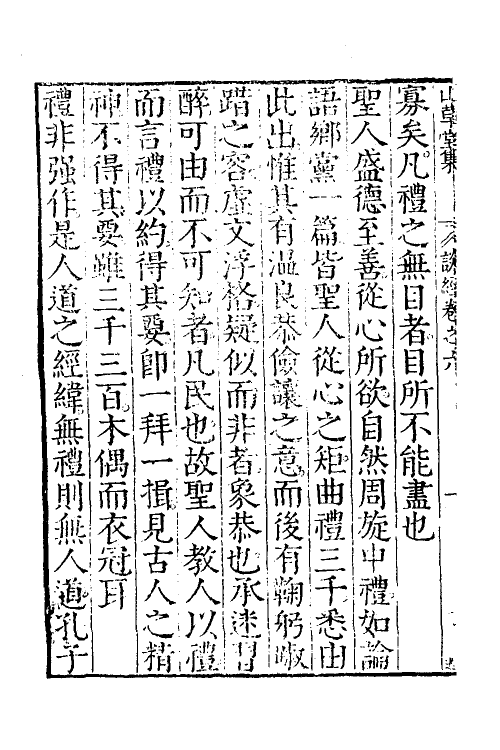 山草堂集　談經卷之六
寡矣凡禮之無目者目所不能盡也
聖人盛德至善從心所欲自然周旋中禮如論
語鄉黨一篇皆聖人從心之矩曲禮三千悉由
此出惟其有溫良恭儉讓之意而後有鞠躬踧
踖之容虛文浮格疑似而非者象恭也承迷習
醉可由而不可知者凡民也故聖人教人以禮
而言禮以約得其要卽一拜一揖見古人之精
神不得其要雖三千三百木偶而衣冠耳
禮非强作是人道之經緯無禮則無人道孔子